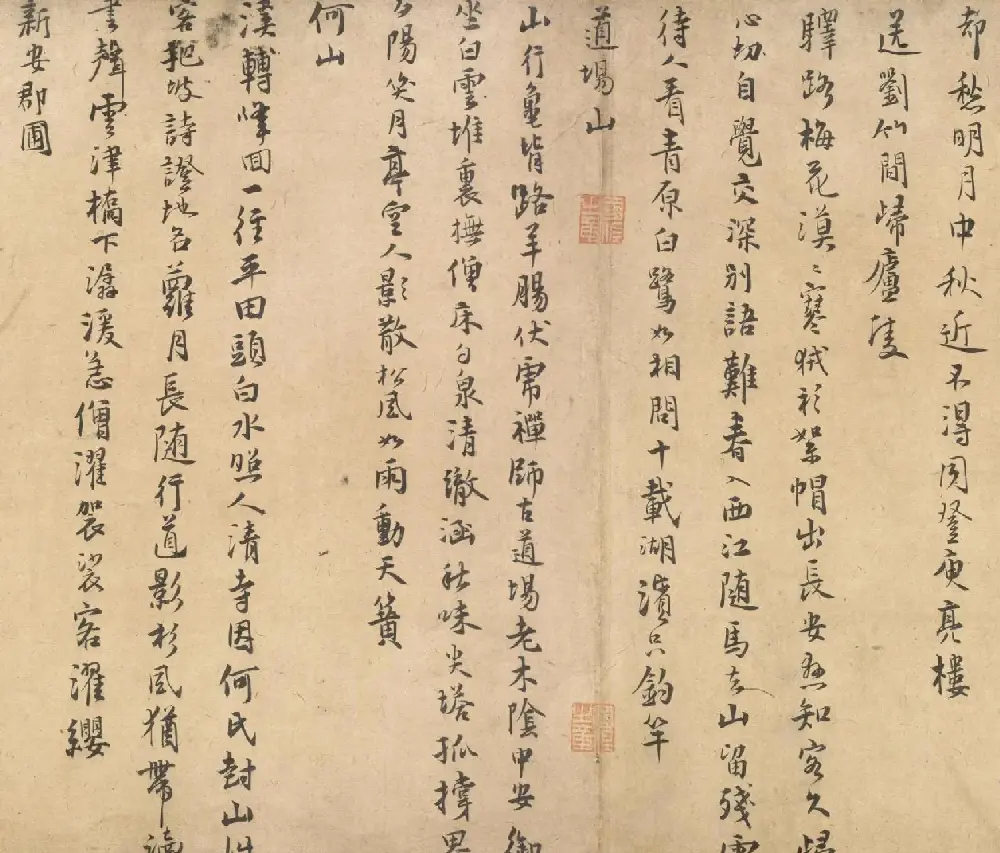 却愁明月中秋近不得同登庾亮樓
送劉竹間歸廬陵
驛路梅花漠〻寒狨衫絮帽出長安為知客久歸
心切自覺交深別語難春入西江隨馬去山留殘雪
待人看青原白鷺如相問十載湖濱只釣竿
道場山
山行龜背路羊腸伏虎禪師古道場老木陰中安御
坐白雲堆裏撫僧床勺泉清澈涵秋味尖塔孤撐界
夕陽笑月亭空人影散松風如雨動天簧
何山
溪轉峰回一徑平田頭白水照人清寺因何氏封山姓
客記坡詩證地名蘿月長隨行道影杉風猶帶讀
書聲雲津橋下潺湲急僧濯袈裟客濯纓
新安郡圃